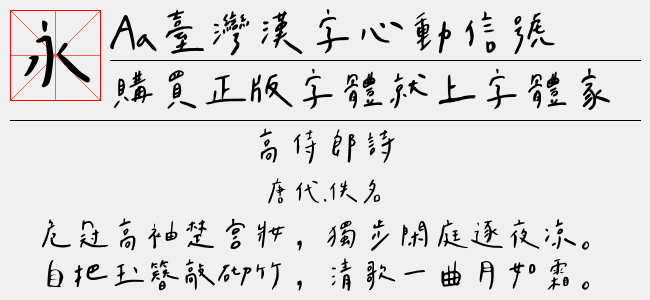 永
Aa臺灣漢字心動信號
購買正版字體就上字體家
高侍郎詩
唐代.佚名
危冠高袖楚宮妝，獨步閑庭逐夜涼。
自把玉簪敲砌竹，清歌一曲月如霜。